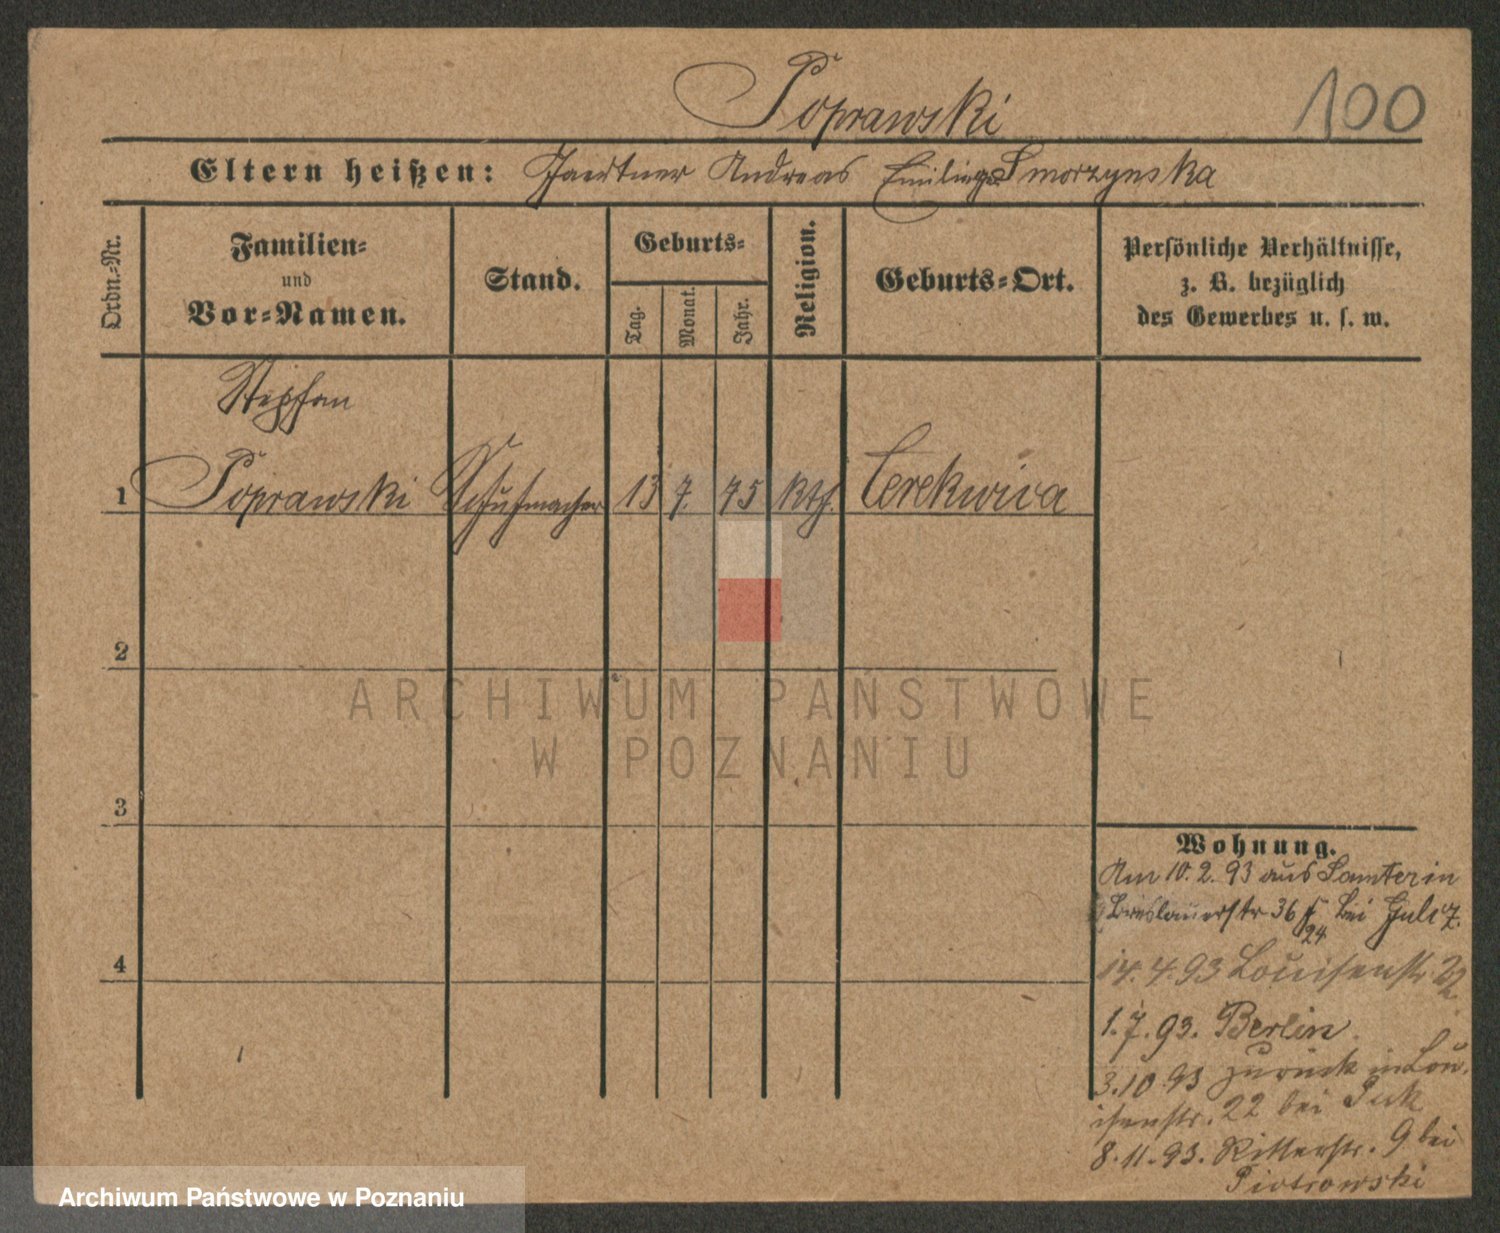 Poprawski
100
Eltern heißen: Gaertner Andreas Emilie Smorzynska
Ordn.=Nr.
Familien=
und
Vor=Namen.
Stand.
Geburts=
Tag.
Monat.
Jahr.
Religion.
Geburts=Ort.
Persönliche Verhältnisse,
z. B. bezüglich
des Gewerbes u. s. w.
Stephan
1 Poprawski Schuhmacher 13 7. 75 kth. Cerekwica
2
3
4
ARCHIWUM PAŃSTWOWE
W POZNANIU
Wohnung.
Am 10.2.93 aus Samter in
Breslauerstr 36 bei
24
14.4.93 Louisenstr. 22
1.7.93. Berlin.
3.10.93 zurück in Lou-
isenstr. 22 bei
8.11.93. Ritterstr. 9 bei
Piotrowski
Archiwum Państwowe w Poznaniu